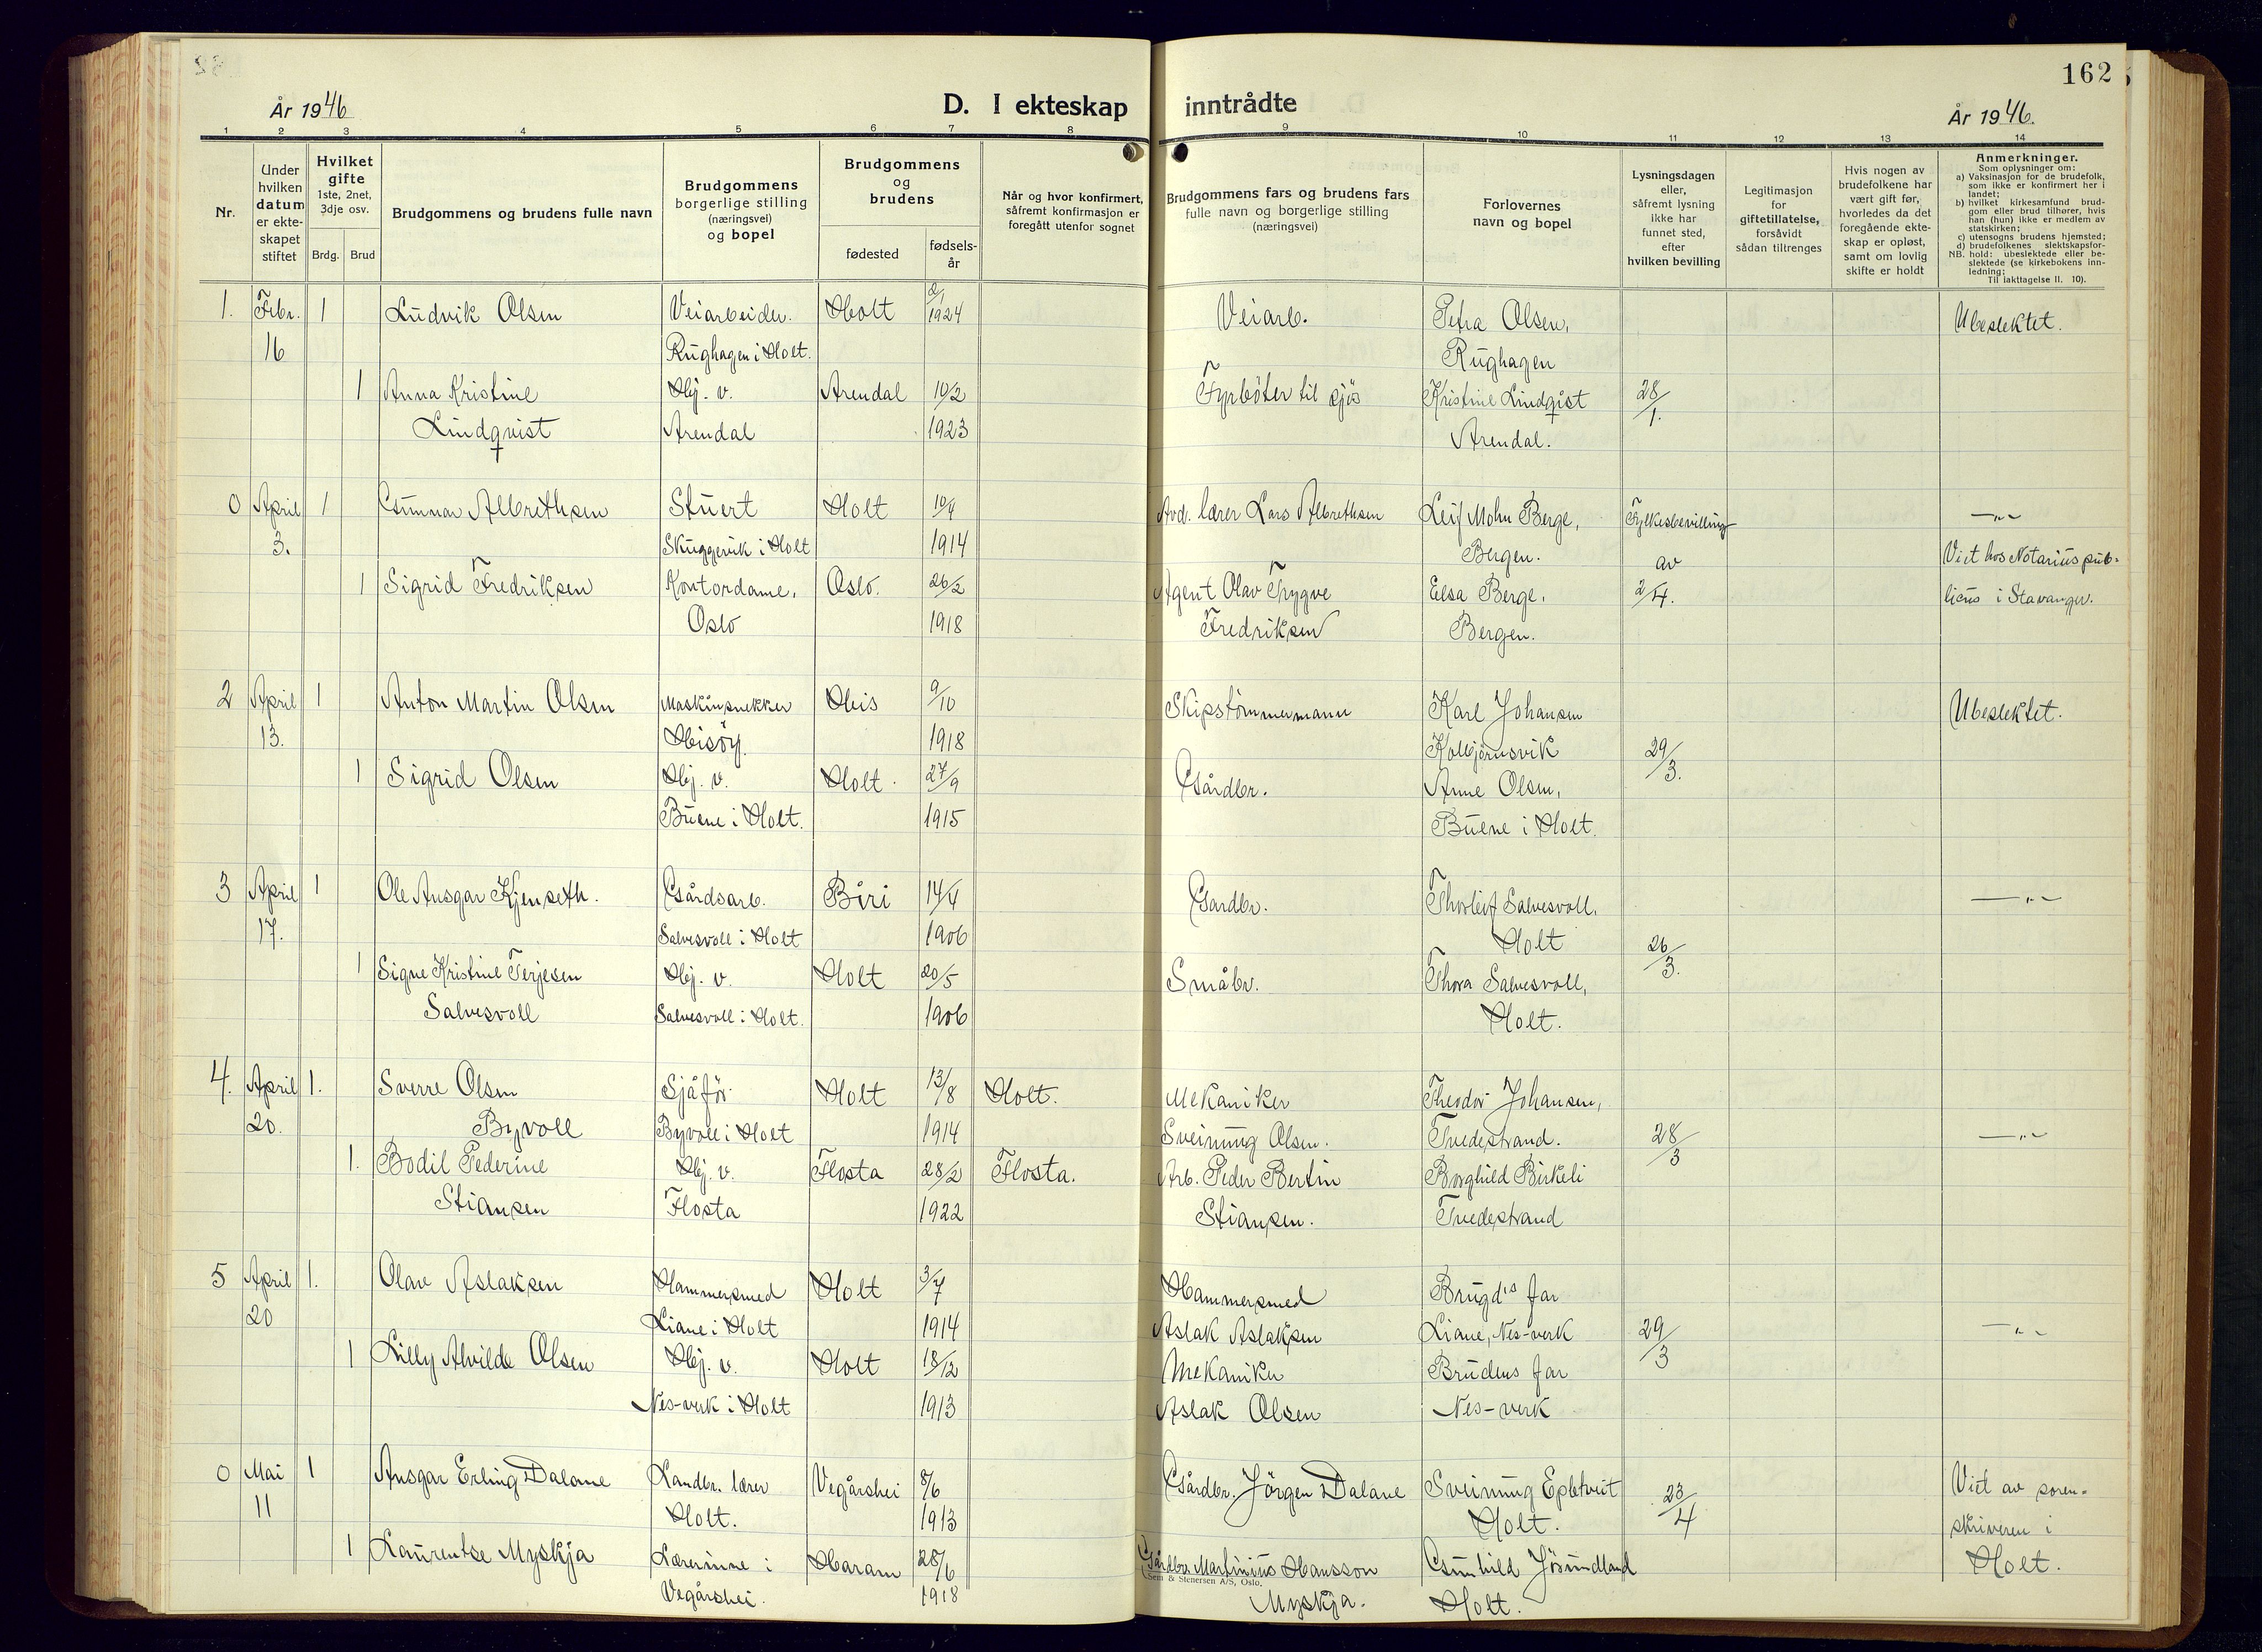 162
År 1946
D. I ekteskap inntrådte
År 1946.
1 2 3 4 5 6 7 8 9 10 11 12 13 14
Nr.
Under
hvilken
datum
er ekte-
skapet
stiftet
Hvilket
gifte
1ste, 2net,
3dje osv.
Brdg. Brud
Brudgommens og brudens fulle navn
Brudgommens
borgerlige stilling
(næringsvei)
og bopel
Brudgommens
og
brudens
fødested
fødsels-
år
Når og hvor konfirmert,
såfremt konfirmasjon er
foregått utenfor sognet
Brudgommens fars og brudens fars
fulle navn og borgerlige stilling
(næringsvei)
Forlovernes
navn og bopel
Lysningsdagen
eller,
såfremt lysning
ikke har
funnet sted,
efter
hvilken bevilling
Legitimasjon
for
giftetillatelse,
forsåvidt
sådan tiltrenges
Hvis nogen av
brudefolkene har
vært gift før,
hvorledes da det
foregående ekte-
skap er opløst,
samt om lovlig
skifte er holdt
Anmerkninger.
Som oplysninger om:
a) Vaksinasjon for de brudefolk,
som ikke er konfirmert her i
landet;
b) hvilket kirkesamfund brud-
gom eller brud tilhører, hvis
han (hun) ikke er medlem av
statskirken;
c) utensogns brudens hjemsted;
d) brudefolkenes slektskapsfor-
NB. hold: ubeslektede eller be-
slektede (se kirkebokens inn-
ledning;
Til iakttagelse II. 10).
1. Febr. 1 Ludvik Olsen Veiarbeider. Holt 2/1 1924 Veiarb. Petra Olsen, Ubeslektet.
16 Rughagen i Holt. Rughagen
1 Anna Kristine Hj. v. Arendal 10/2 Fyrbøter til sjøs Kristine Lindqist 28/1.
Lindqvist Arendal 1923 Arendal.
0 April 1 Gunnar Albrethsen Stuert Holt 10/4 Avd. lærer Lars Albrethsen Leif Mohn Berge, Fylkesbevilling —"—
3. Skuggevik i Holt 1914 Bergen. av Viet hos Notarius pub-
1 Sigrid Fredriksen Kontordame, Oslo. 26/2 Agent Olav Trygve Elsa Berge, 2/4. licus i Stavanger.
Oslo 1918 Fredriksen Bergen.
2 April 1 Anton Martin Olsen Maskinsnekker His 9/10 Skipstømmermann Karl Johansen Ubeslektet.
13. Hisøy. 1918 Kolbjørnsvik 29/3.
1 Sigrid Olsen Hj. v. Holt 27/9 Gårdbr. Anne Olsen,
Buene i Holt. 1915 Buene i Holt.
3 April 1 Ole Ansgar Kjenseth. Gårdsarb. Biri 14/4 Gardbr. Thorleif Salvesvoll, —"—
17. Salvesvoll i Holt 1906 Holt 26/3.
1 Signe Kristine Terjesen Hj. v. Holt 20/5 Småbr. Thora Salvesvoll,
Salvesvoll Salvesvoll i Holt. 1906 Holt.
4. April 1. Sverre Olsen Sjåfør Holt 13/8 Holt. Mekaniker Theodor Johansen,
20. Byvoll Byvoll i Holt 1914 Sveinung Olsen. Tvedestrand. 28/3 —"—
1. Bodil Pederine Hj. v. Flosta 28/2 Flosta. Arb. Peder Bertin Borghild Birkeli
Stiansen Flosta 1922 Stiansen. Tvedestrand
5 April 1. Olav Aslaksen Hammersmed Holt 3/7 Hammersmed Brugds far
20 Liane i Holt 1914 Aslak Aslaksen Liane, Nes-verk 29/3 —"—
1 Lilly Alvilde Olsen Hj. v. Holt 18/12 Mekaniker Brudens far
Nes-verk i Holt 1913 Aslak Olsen Nes-verk
0 Mai 1 Ansgar Erling Dalane Landbr. lærer Vegårshei 8/6 Gårdbr. Jörgen Dalane Sveinung Epletveit 23/4 Viet av soren-
11 Holt. 1913 Holt. skriveren i
1 Laurentse Myskja Lærerinne i Haram 28/6 Gårdbr. Martinius Hansson Gunhild Jörundland Holt.
Vegårshei. 1918 Myskja. Holt.
Sem & Stenersen A/S, Oslo.